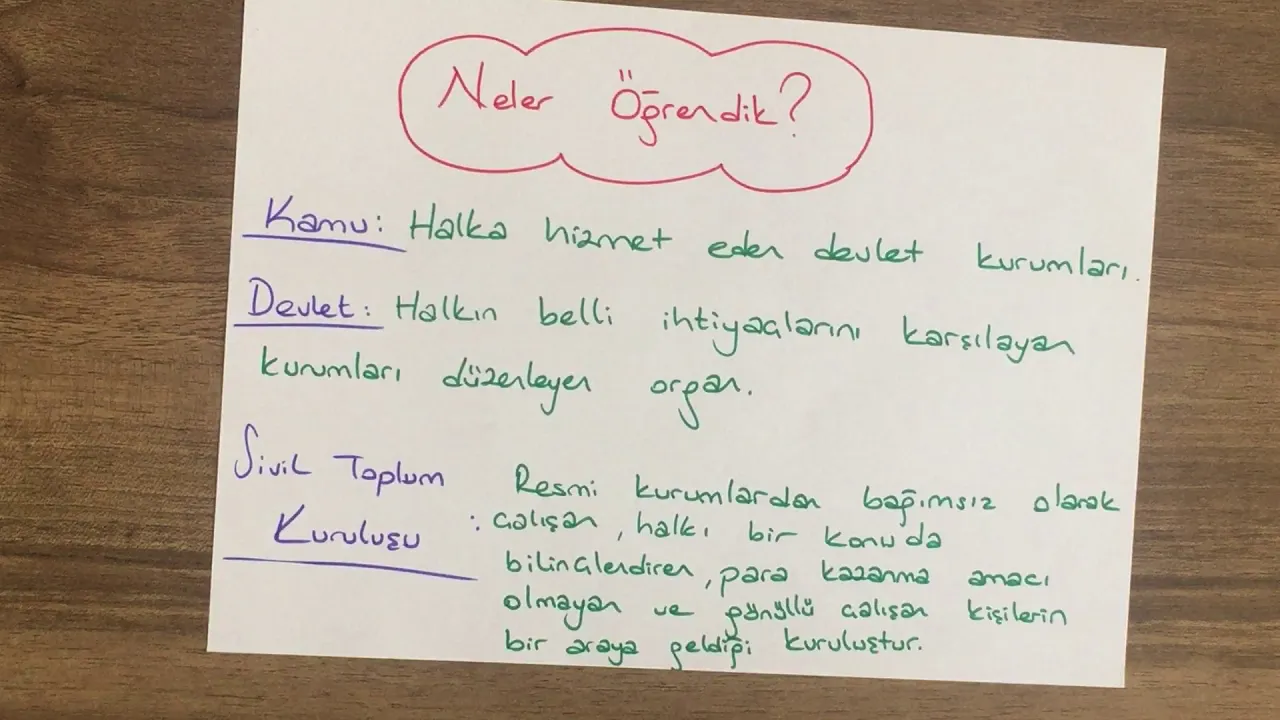 Neler Öğrendik?
Kamu: Halka hizmet eden devlet kurumları.
Devlet: Halkın belli ihtiyaçlarını karşılayan
kurumları düzenleyen organ.
Sivil Toplum
Kuruluşu :
Resmi kurumlardan bağımsız olarak
çalışan, halkı bir konuda
bilinçlendiren, para kazanma amacı
olmayan ve gönüllü çalışan kişilerin
bir araya geldiği kuruluştur.